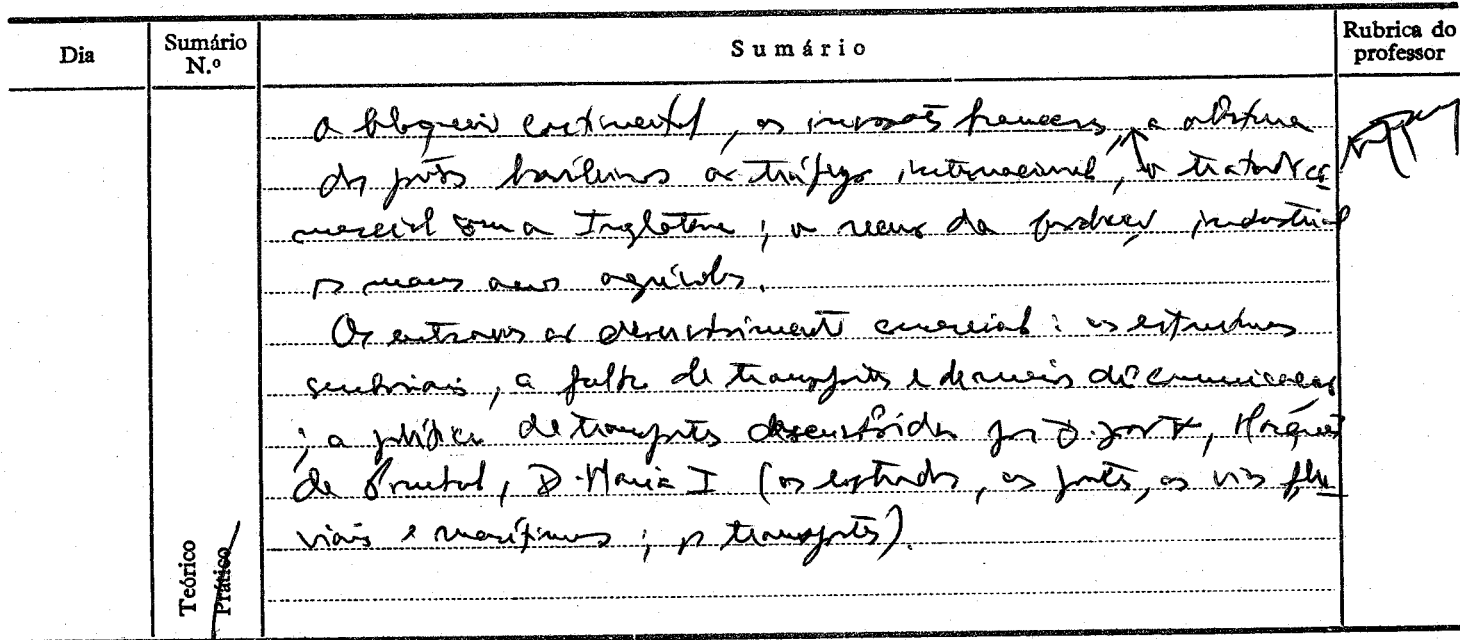 Dia Sumário N.º Sumário Rubrica do professor
o bloqueio continental, as invasões francesas, a abertura
dos portos brasileiros ao tráfego internacional, o tratado co
mercial com a Inglaterra; o recuo da produção industrial
os novos agrícolas.
Os entraves ao desenvolvimento comercial: as estruturas
senhoriais, a falta de transportes e de meios de comunicação
; a política de transportes desenvolvida por D. José I, Marquês
de Pombal, D. Maria I (as estradas, as pontes, as vias flu
viais e marítimas; os transportes).
Teórico
Prático